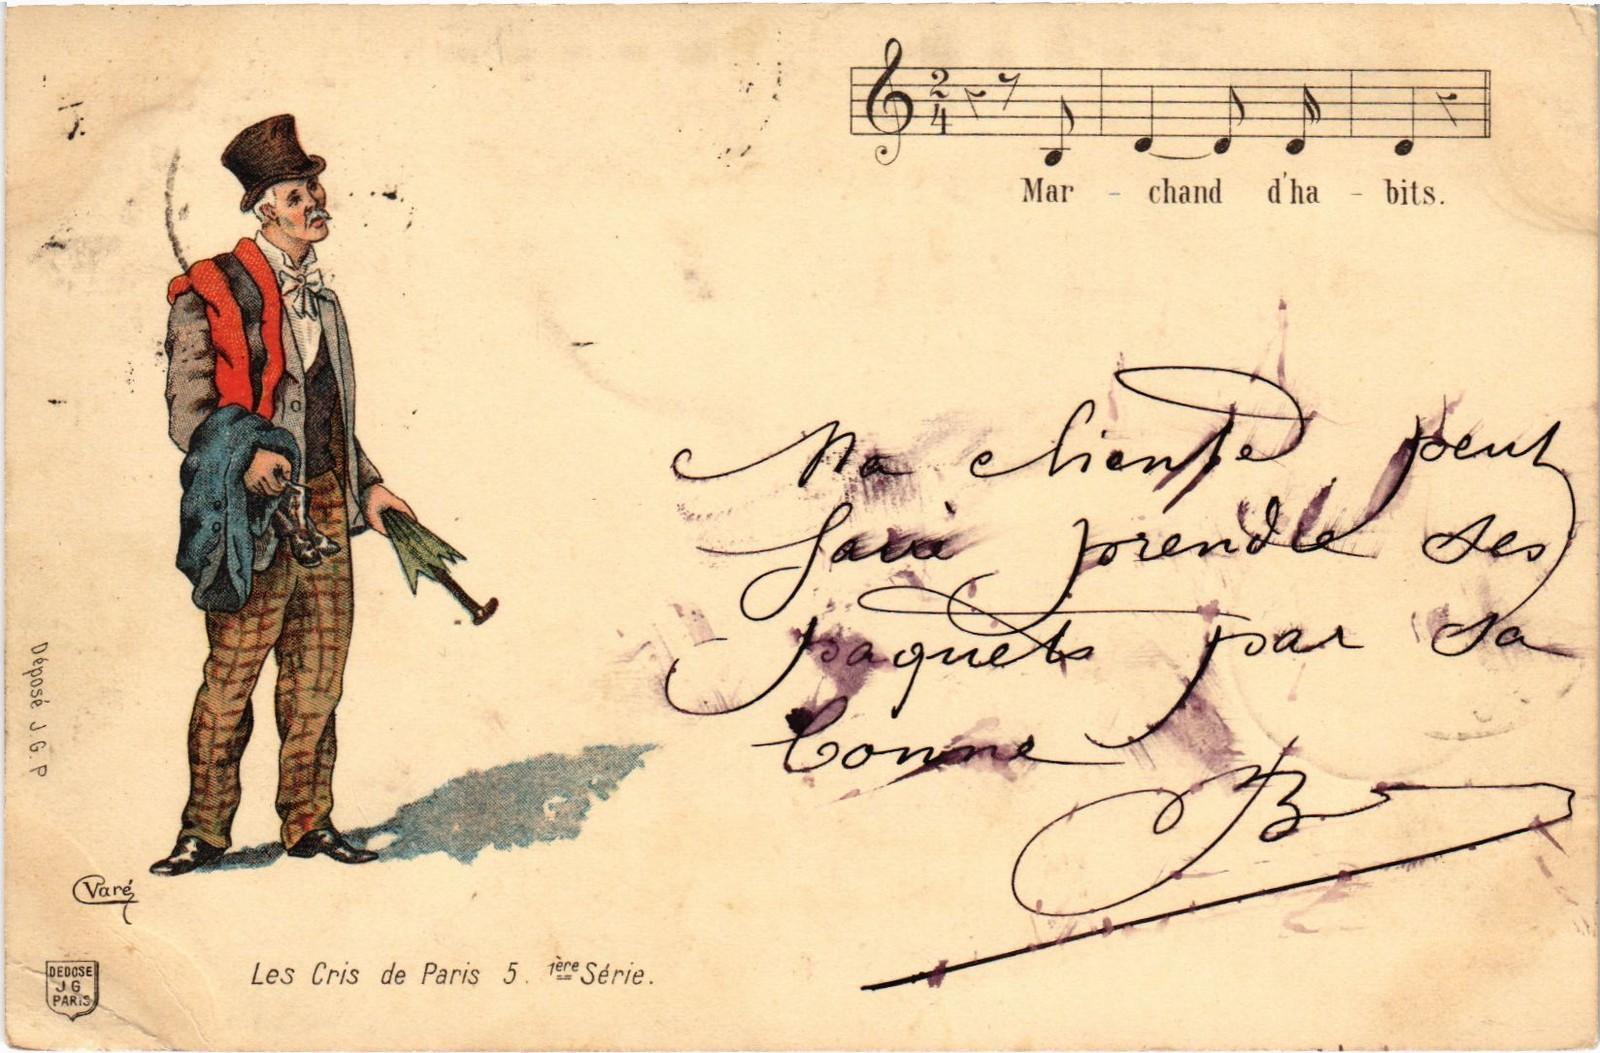 2
4
Mar - chand d'ha - bits.
Ma cliente peut
faire prendre ses
paquets par sa
bonne
B
Déposé J.G.P
Varé
DEDOSE
J G
PARIS
Les Cris de Paris 5. 1ère Série.